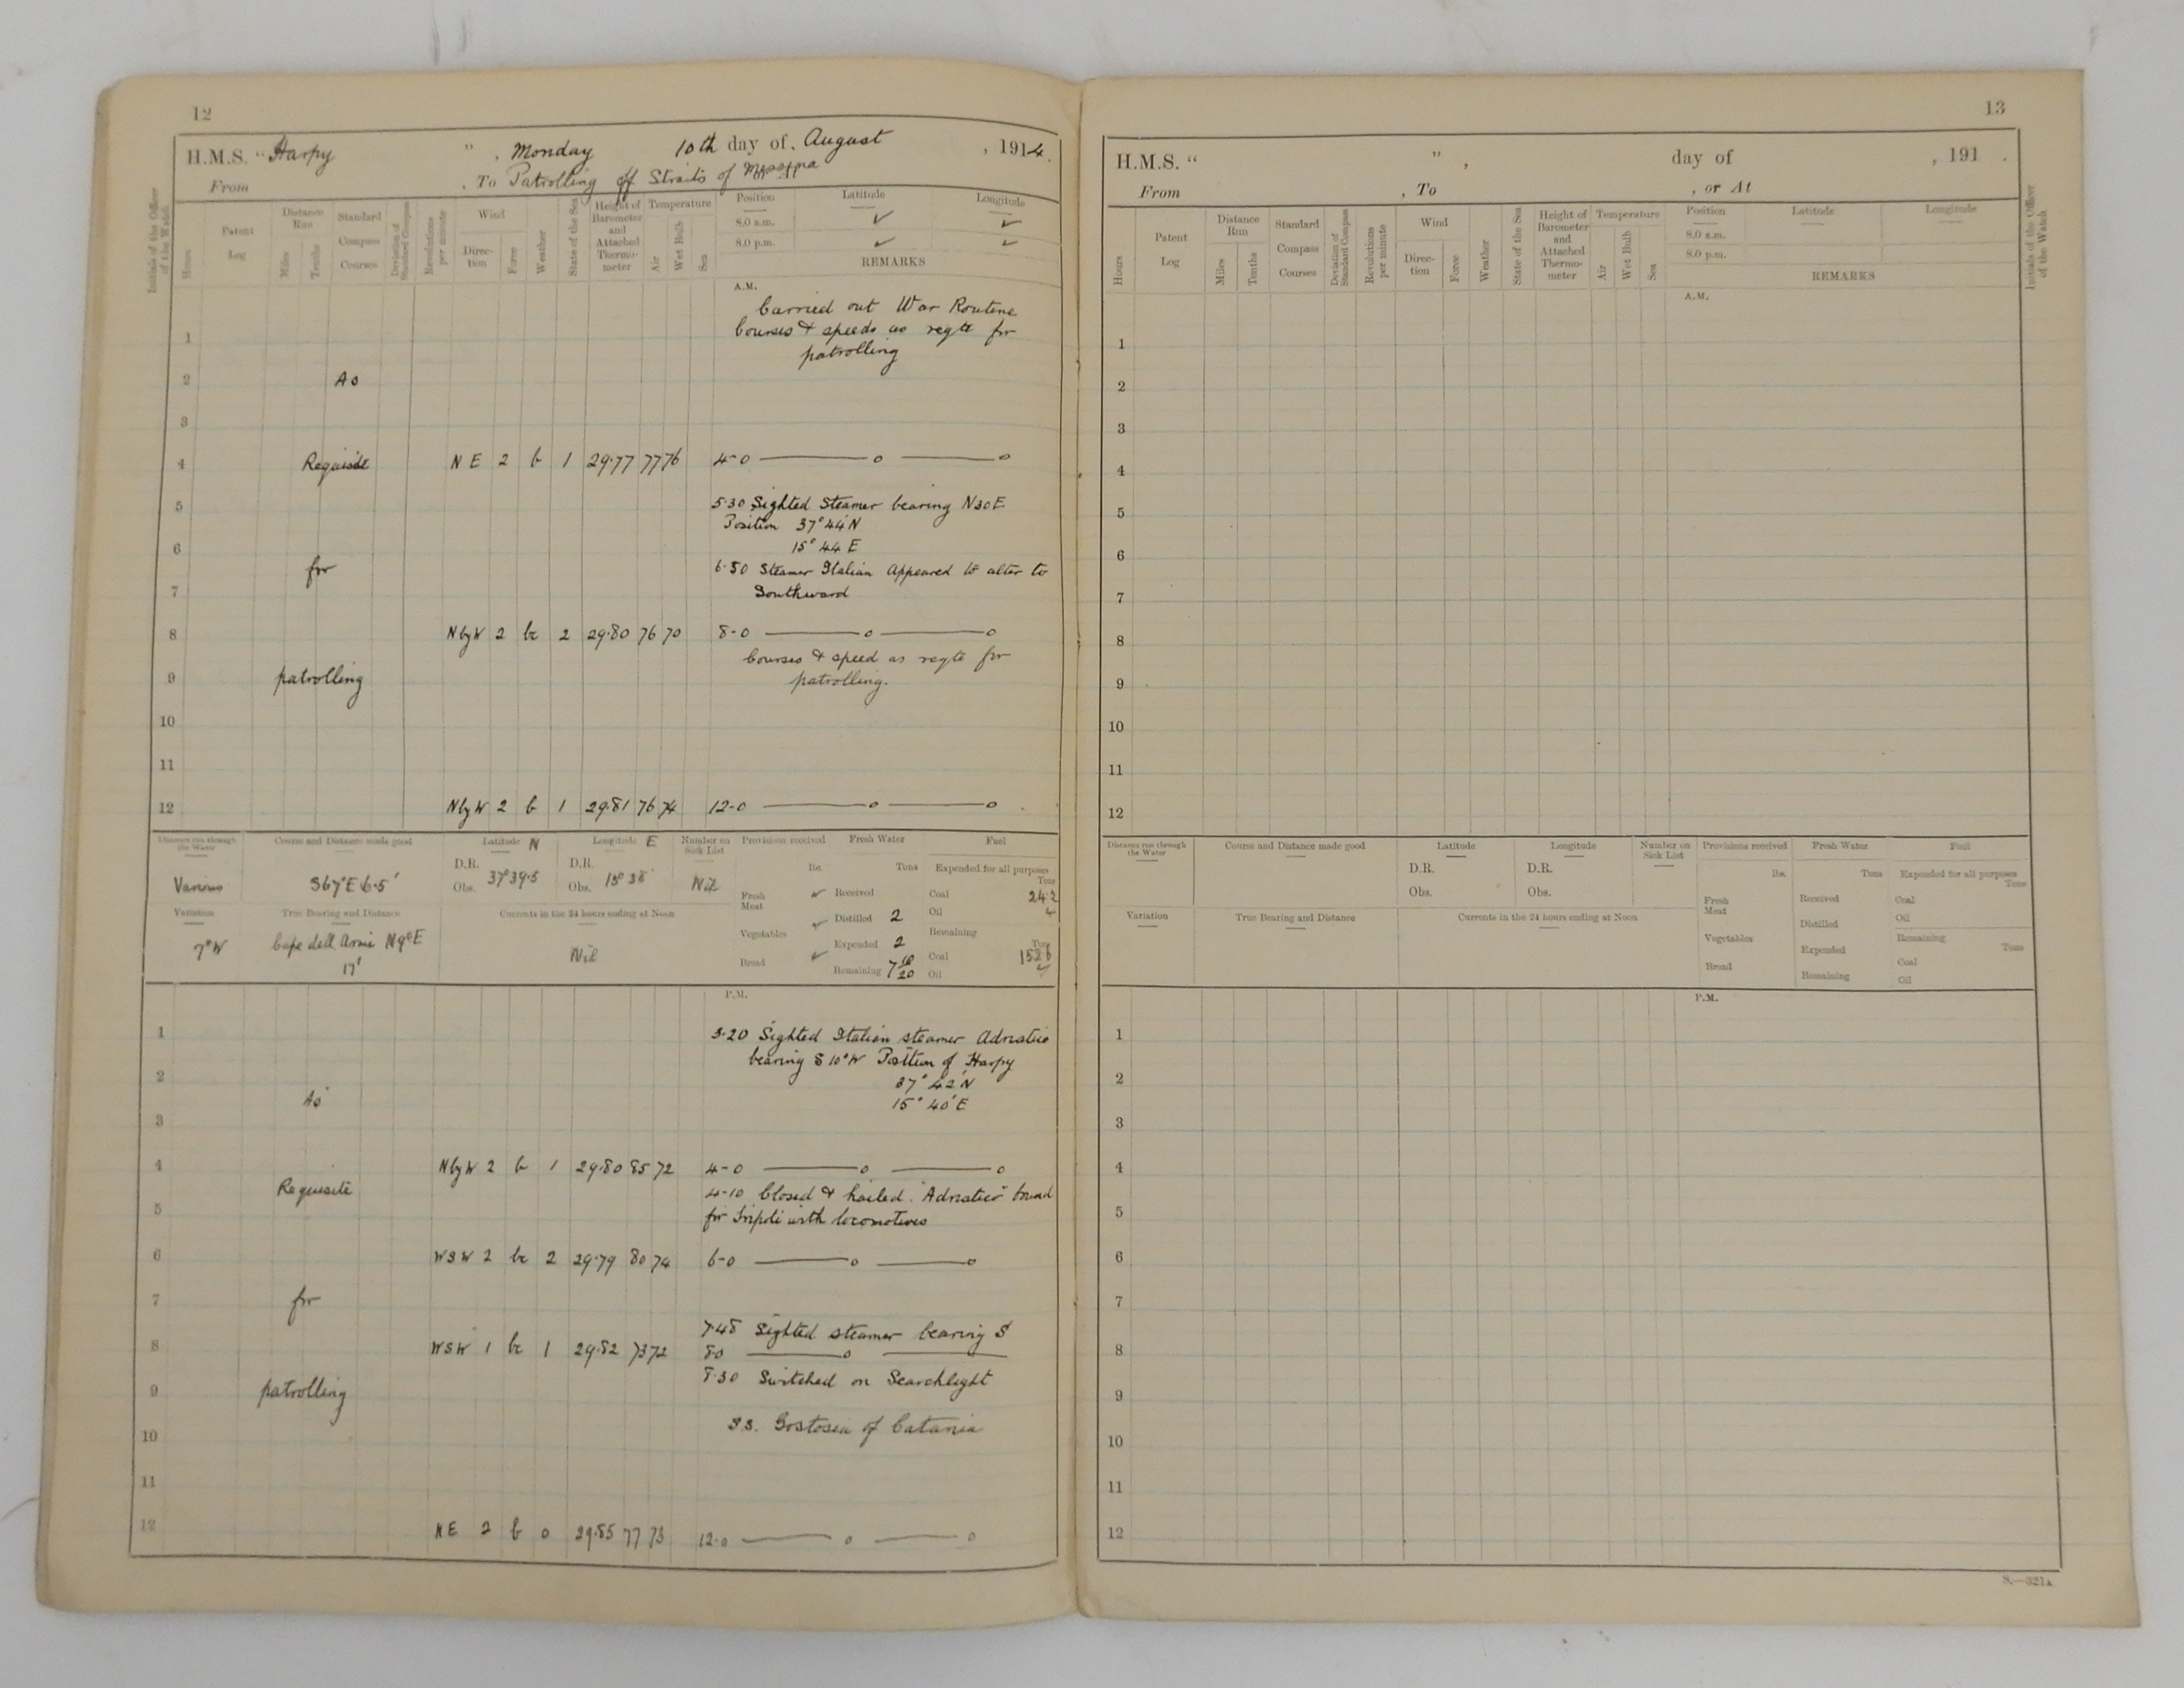 12
H.M.S. "Harpy", Monday 10th day of August, 1914.
From , To Patrolling off Straits of Messina
Initials of the Officer of the Watch
Hours
Patent Log
Distance Run
Miles
Tenths
Standard Compass Courses
Deviation of Standard Compass
Revolutions per minute
Wind
Direction
Force
Weather
State of the Sea
Height of Barometer and Attached Thermometer
Temperature
Air
Wet Bulb
Sea
Position Latitude Longitude
8.0 a.m. ✓ ✓
8.0 p.m. ✓ ✓
REMARKS
A.M.
Carried out War Routine
1 Courses & speeds as reqte for
patrolling
2 As
3
4 Requisite N E 2 b 1 29.77 77 76 4-0 —— o —— o
5 5.30 Sighted Steamer bearing N30E
Position 37° 44' N
6 15° 44 E
for 6.50 Steamer Italian Appeared to alter to
7 Southward
8 NbyW 2 bc 2 29.80 76 70 8-0 —— o —— o
Courses & speed as reqte for
9 patrolling patrolling.
10
11
12 NbyW 2 b 1 29.81 76 74 12-0 —— o —— o
Distance run through the Water
Various
Course and Distance made good
S67°E 6.5'
Latitude N
D.R.
Obs. 37°39.5
Longitude E
D.R.
Obs. 15° 38'
Number on Sick List
Nil
Variation
7°W
True Bearing and Distance
Cape dell Armi N9°E
17'
Currents in the 24 hours ending at Noon
Nil
Provisions received
lbs.
Fresh Meat ✓
Vegetables ✓
Bread ✓
Fresh Water
Tons
Received
Distilled 2
Expended 2
Remaining 7 10/20
Fuel
Expended for all purposes
Tons
Coal 24.2
Oil ✓
Remaining
Tons
Coal
Oil
P.M.
1 3.20 Sighted Italian steamer Adriatico
bearing S 10°W Position of Harpy
2 37° 42' N
As 15° 40' E
3
4 NbyW 2 b 1 29.80 85 72 4-0 —— o —— o
Requisite 4-10 Closed & hailed "Adriatico" bound
5 for Tripoli with locomotives
6 WSW 2 bc 2 29.79 80 74 6-0 —— o —— o
7 for
7.45 Sighted steamer bearing S
8 WSW 1 bc 1 29.82 73 72 8 0 —— o ——
9 patrolling 8.30 Switched on Searchlight
10 S.S. of Catania
11
12 NE 2 b 0 29.85 77 73 12.0 —— o —— o
13
H.M.S. " ", day of , 191 .
From , To , or At
Initials of the Officer of the Watch
Hours
Patent Log
Distance Run
Miles
Tenths
Standard Compass Courses
Deviation of Standard Compass
Revolutions per minute
Wind
Direction
Force
Weather
State of the Sea
Height of Barometer and Attached Thermometer
Temperature
Air
Wet Bulb
Sea
Position Latitude Longitude
8.0 a.m.
8.0 p.m.
REMARKS
A.M.
1
2
3
4
5
6
7
8
9
10
11
12
Distance run through the Water
Course and Distance made good
Latitude
D.R.
Obs.
Longitude
D.R.
Obs.
Number on Sick List
Variation
True Bearing and Distance
Currents in the 24 hours ending at Noon
Provisions received
lbs.
Fresh Meat
Vegetables
Bread
Fresh Water
Tons
Received
Distilled
Expended
Remaining
Fuel
Expended for all purposes
Tons
Coal
Oil
Remaining
Tons
Coal
Oil
P.M.
1
2
3
4
5
6
7
8
9
10
11
12
S.—321A